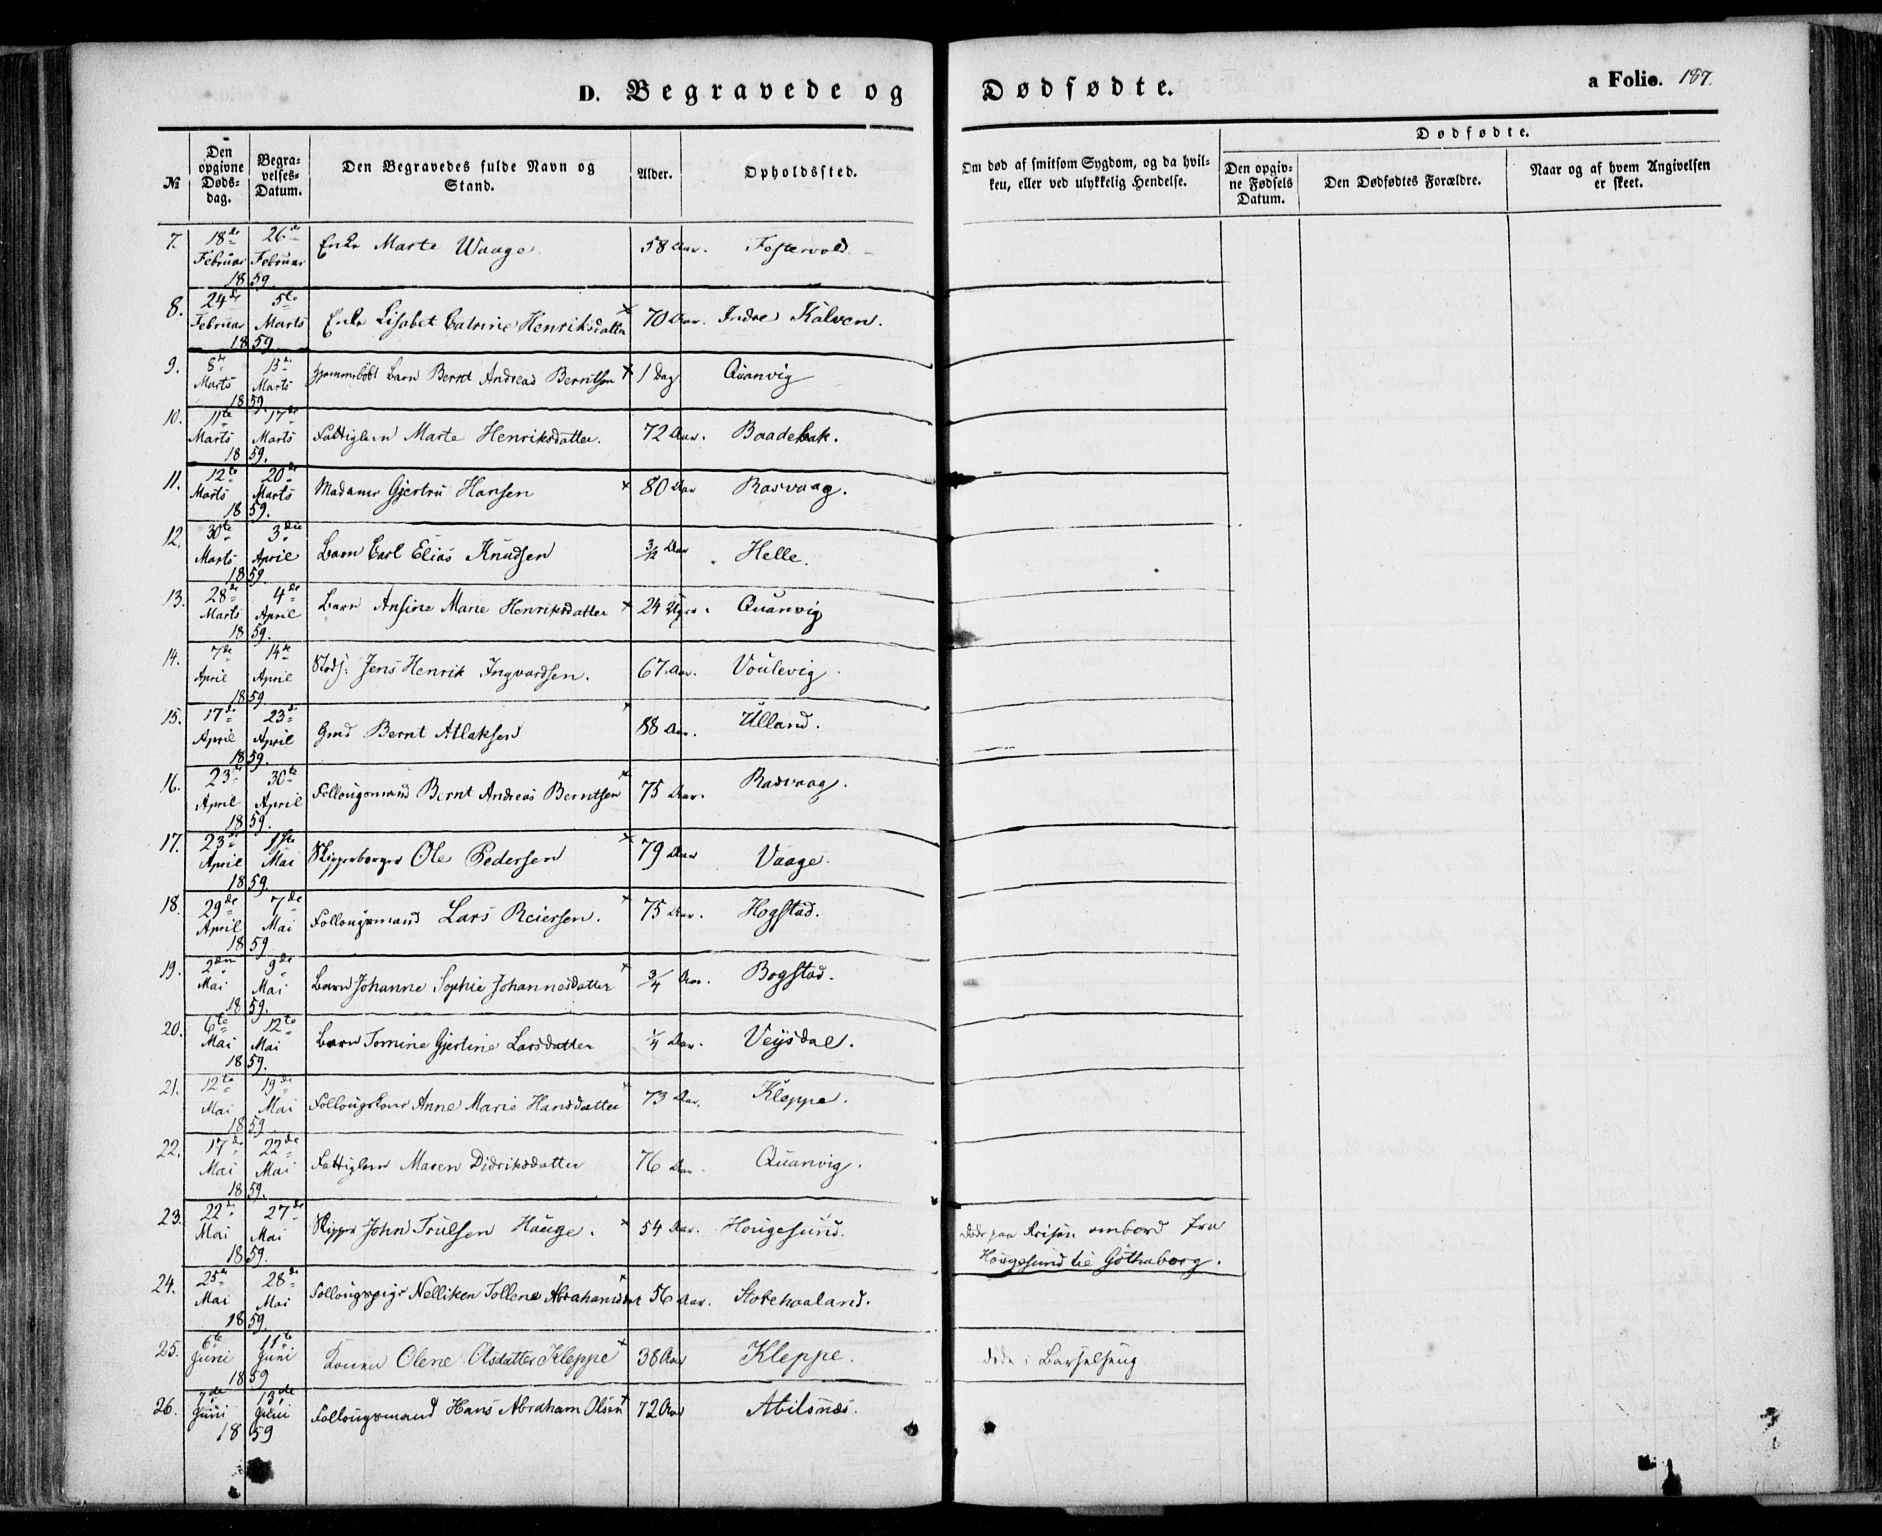 D. Begravede og Dødfødte.
a Folio. 187.
№
Den opgivne Døds-dag.
Begra-velses-Datum.
Den Begravedes fulde Navn og Stand.
Alder.
Opholdssted.
Om død af smitsom Sygdom, og da hvil-ken, eller ved ulykkelig Hendelse.
Dødfødte.
Den opgiv-ne Fødsels Datum.
Den Dødfødtes Forældre.
Naar og af hvem Angivelsen er skeet.
7. 18de Februar 26de Februar 1859. Enke Marte Waage 58 Aar. Festervold
8. 24de Februar 5te Marts 1859 Enke Lisabet Catrine Henriksdatter 70 Aar. Indre Kalven.
9. 8de Marts 13de Marts 1859. Hjemmedøbt Barn Bernt Andreas Berntsen 1 Dag Quanvig
10. 11te Marts 17de Marts 1859. Fattiglem Marte Henriksdatter. 72 Aar. Baadebak.
11. 12te Marts 20de Marts 1859. Madame Gjertru Hansen 80 Aar Rasvaag.
12. 30te Marts 3die April 1859. Barn Carl Elias Knudsen 3/12 Aar Helle.
13. 28de Marts 4de April 1859. Barn Ansine Marie Henriksdatter 24 Uger. Quanvig
14. 7de April 14de April 1859 Jens Henrik Ingvardsen. 67 Aar. Voulevig
15. 17de April 23de April 1859. Gmd Bernt Atlaksen 88 Aar. Ulland.
16. 23de April 30te April 1859. Follougsmand Bernt Andreas Berntsen 75 Aar. Rasvaag.
17. 23de April 1ste Mai 1859. Skipperborger Ole Pedersen 79 Aar Vaage.
18. 29de April 7de Mai 1859 Follougsmand Lars Reiersen. 75 Aar. Hogstad.
19. 2den Mai 9de Mai 1859. Barn Johanne Sophie Johannesdatter 3/4 Aar. Bogstad.
20. 6te Mai 12te Mai 1859. Barn Tomine Gjertine Larsdatter 1/4 Aar. Veisdal.
21. 12te Mai 19de Mai 1859. Follougskone Anne Marie Hansdatter 73 Aar. Kleppe.
22. 17de Mai 22de Mai 1859. Fattiglem Maren Didriksdatter 76 Aar. Quanvig.
23. 22de Mai 27de Mai 1859. Skipper John Trulsen Hauge. 54 Aar. Hougesund. døde paa Reisen ombord fra
Hougesund til Göthaborg.
24. 25de Mai 28de Mai 1859. Follougspige Nelliken Tollene Abrahamsdat 56 Aar. Storehaaland.
25. 6te Juni 11te Juni 1859 Konen Olene Olsdatter Kleppe 38 Aar Kleppe. døde i Barselseng
26. 7de Juni 13de Juni 1859 Follougsmand Hans Abraham Olsen 72 Aar Abilsnæs.